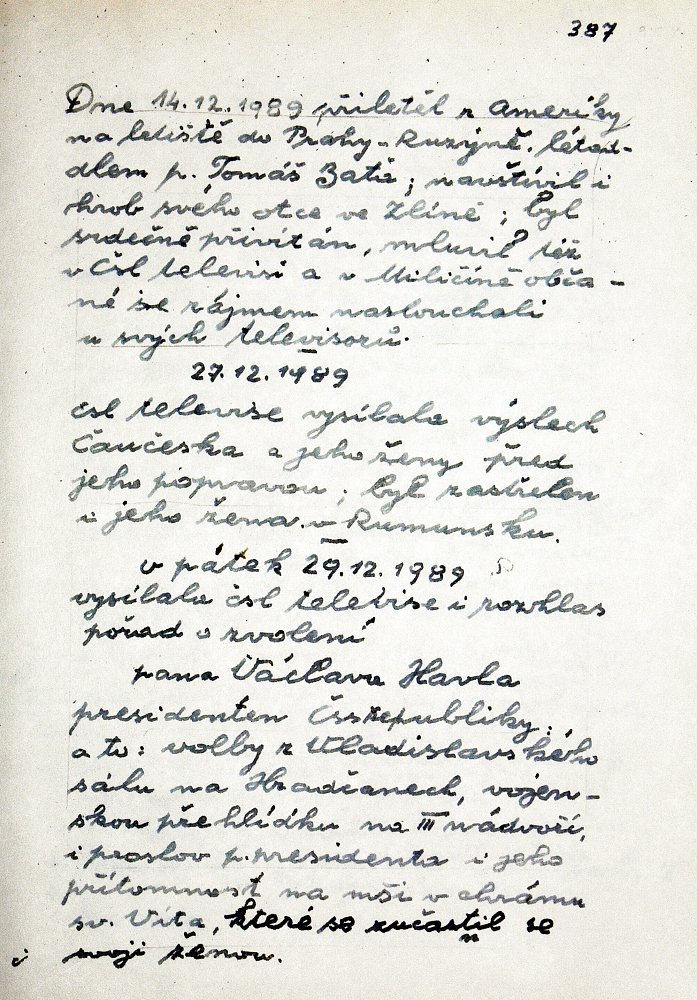 387
Dne 14.12.1989 přiletěl z Ameriky
na letiště do Prahy-Ruzýně, létad-
dlem p. Tomáš Baťa; navštívil i
hrob svého otce ve Zlíně; byl
srdečně přivítán, mluvil též
v Čsl televisi a v Miličíně obča-
né se zájmem naslouchali
u svých televisorů.
27.12.1989
čsl televise vysílala výslech
Čaučeska a jeho ženy před
jeho popravou; byl zastřelen
i jeho žena v Rumunsku.
v pátek 29.12.1989
vysílala čsl televise i rozhlas
pořad o zvolení
pana Václava Havla
presidentem Čssrepubliky;
a to: volby z Vladislavského
sálu na Hradčanech, vojen-
skou přehlídku na III nádvoří,
i proslov p. presidenta i jeho
přítomnost na mši v chrámu
sv. Víta, které se zučastnil se
svojí ženou.